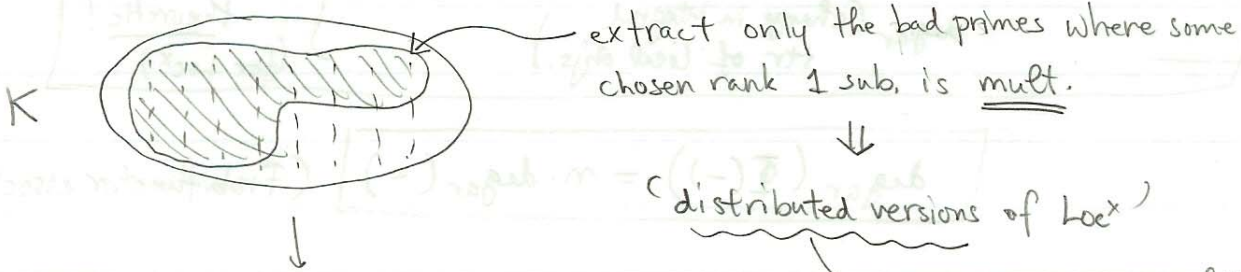 extract only the bad primes where some
K
chosen rank 1 sub. is mult.
⇓
(distributed versions of Loc^x)
↓